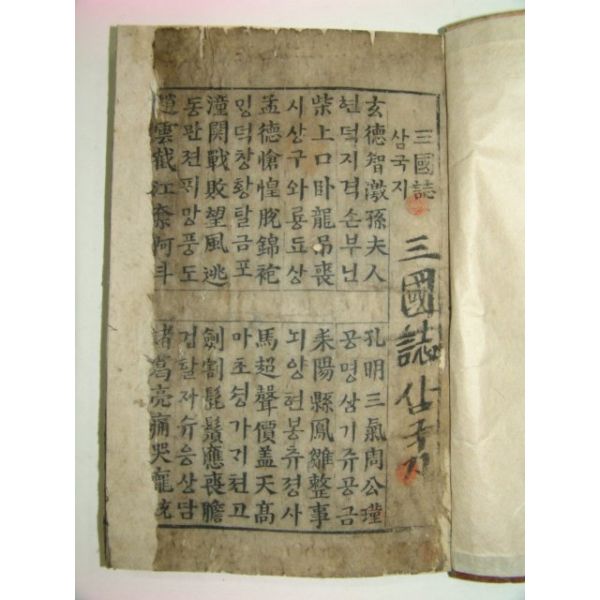 三國誌
삼국지
三國誌 삼국지
玄德智激孫夫人
현덕지격손부닌
柴上口臥龍吊喪
시상구와룡됴상
孟德愴惶脫錦袍
밍덕창황탈금포
潼関戰敗望風逃
동관전픠망풍도
趙雲截江奪阿斗
孔明三氣周公瑾
공명삼기쥬공금
耒陽縣鳳雛整事
뇌양현봉츄졍사
馬超聲價盖天高
마초셩가기천고
劍割髭鬚應喪膽
검할자슈응상담
諸葛亮痛哭龐統